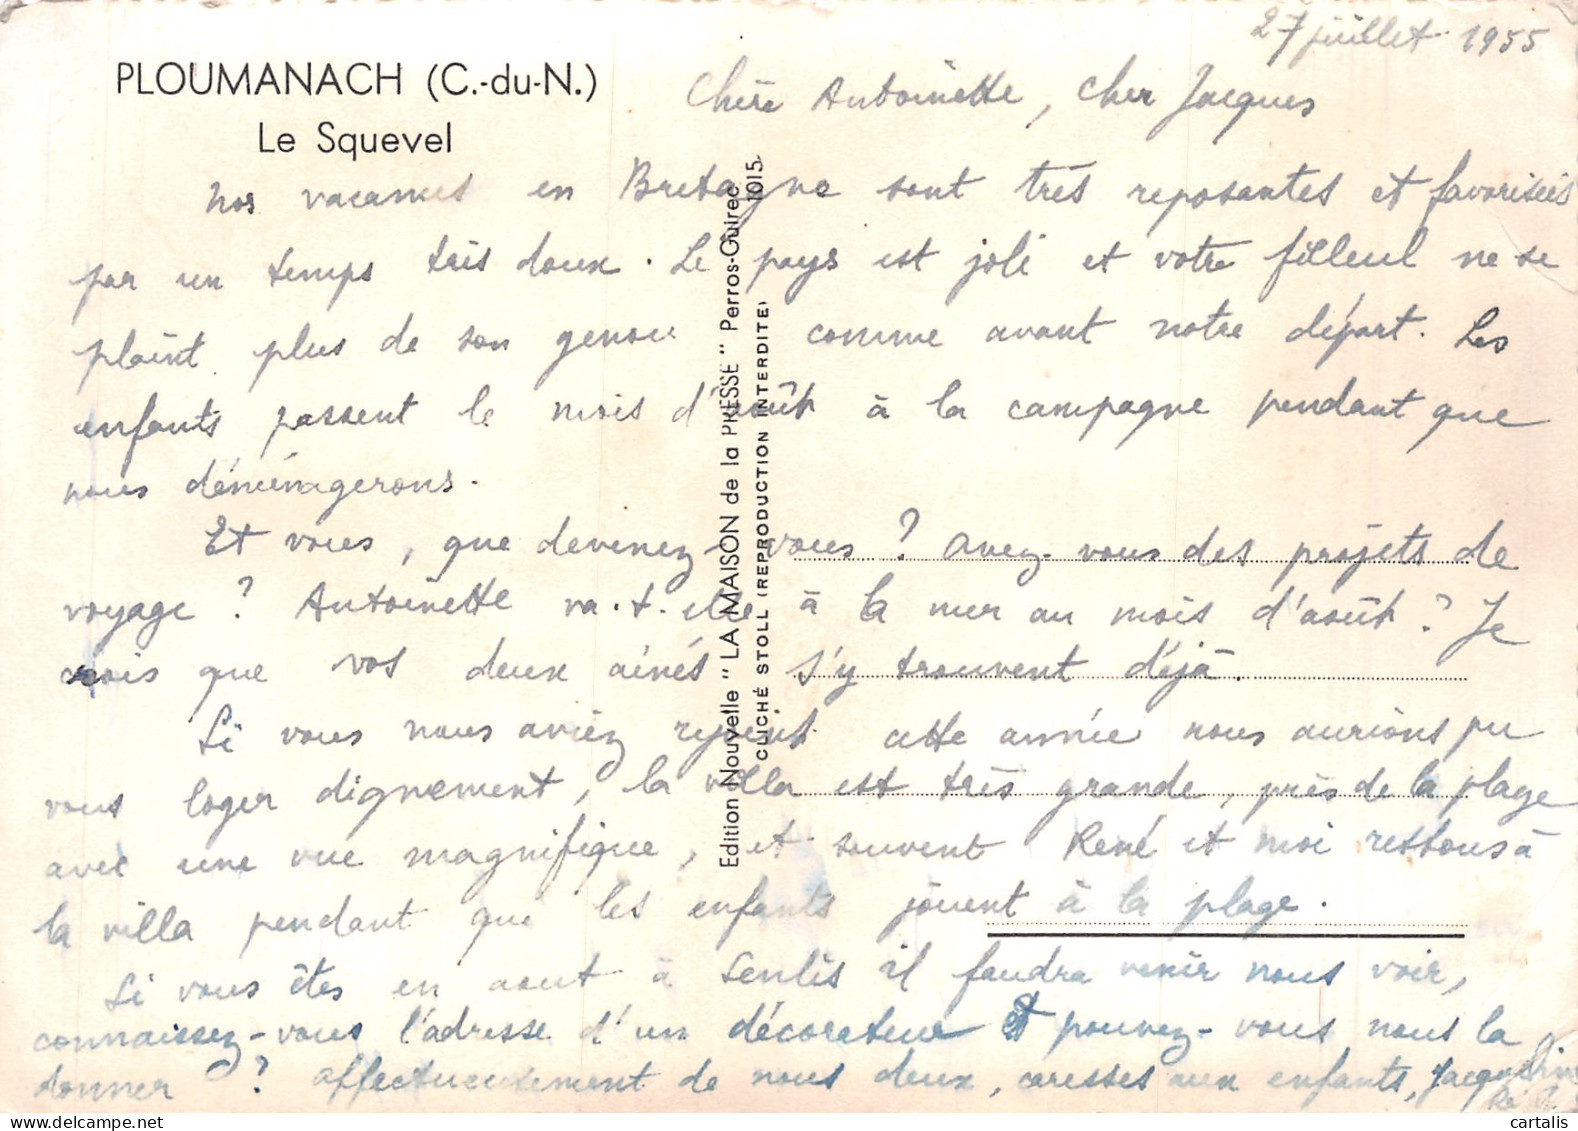 27 juillet 1955
PLOUMANACH (C.-du-N.)
Le Squevel
Chère Antoinette, cher Jacques
Nos vacances en Bretagne sont très reposantes et favorisées
par un temps très doux. Le pays est joli et votre filleul ne se
plaint plus de son genou comme avant notre départ. Les
enfants passent le mois d'août à la campagne pendant que
nous déménagerons.
Et vous, que devenez-vous ? Avez-vous des projets de
voyage ? Antoinette va-t-elle à la mer au mois d'août ? Je
crois que vos deux aînés s'y trouvent déjà.
Si vous nous aviez rejoint cette année nous aurions pu
vous loger dignement, la villa est très grande, près de la plage
avec une vue magnifique, et souvent René et moi restons à
la villa pendant que les enfants jouent à la plage.
Si vous êtes en aout à Senlis il faudra venir nous voir,
connaissez-vous l'adresse d'un décorateur et pouvez-vous nous la
donner ? affectueusement de nous deux, caresses aux enfants, Jacqueline
Edition Nouvelle "LA MAISON de la PRESSE" Perros-Guirec
1015
CLICHÉ STOLL (REPRODUCTION INTERDITE)
cartalis